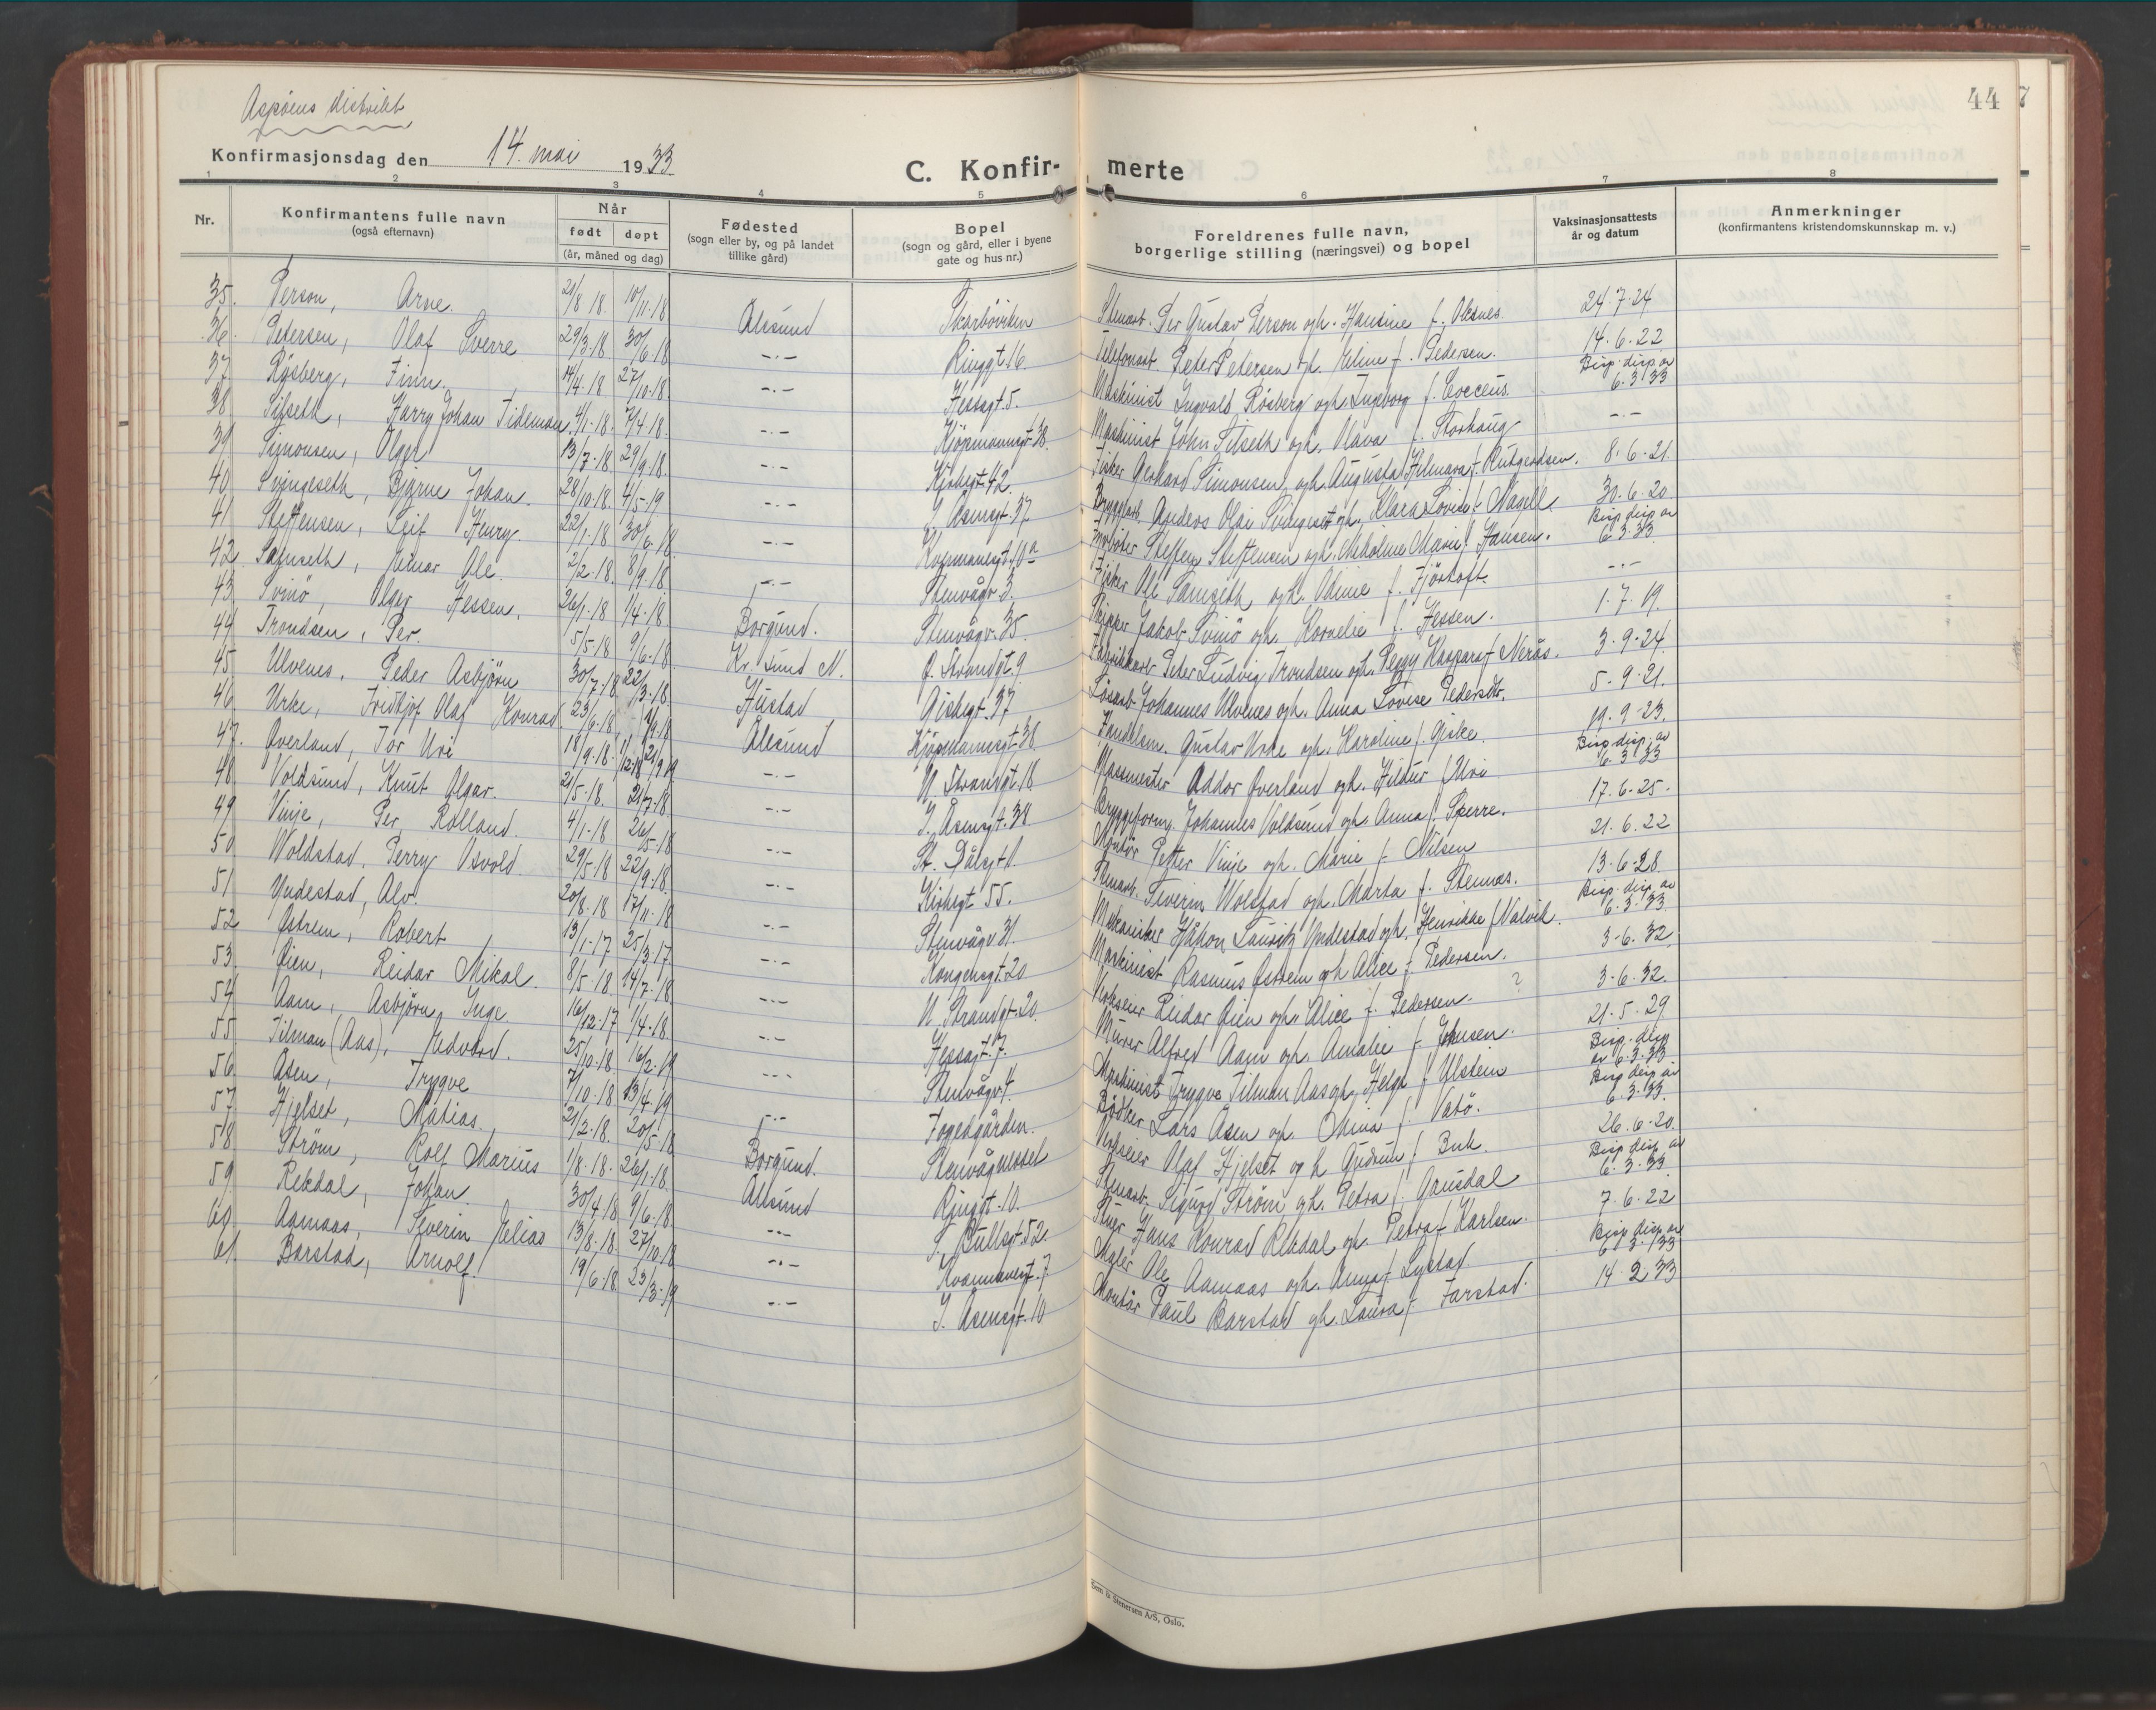 Aspøens distrikt
44
Konfirmasjonsdag den 14. mai 1933
C. Konfir- merte
1 2 3 4 5 6 7 8
Nr.
Konfirmantens fulle navn
(også efternavn)
Når
født døpt
(år, måned og dag)
Fødested
(sogn eller by, og på landet
tillike gård)
Bopel
(sogn og gård, eller i byene
gate og hus nr.)
Foreldrenes fulle navn,
borgerlige stilling (næringsvei) og bopel
Vaksinasjonsattests
år og datum
Anmerkninger
(konfirmantens kristendomskunnskap m. v.)
35. Person, Arne. 21/8 18. 10/11.18 Ålesund Skarböviken Stenarb. Per Gustav Person oh. Hansine f. Olesnes 24.7.24
36. Petersen, Olaf Sverre 29/3.18 30/6.18 -.- Ringgt. 16. Telefonarb. Peter Petersen oh. Eline f. Pedersen. 14.6.22
37 Rösberg, Finn. 14/4.18 27/10.18 -.- Hessagt 5. Maskinist Ingvald Rösberg oh. Ingeborg f. Cocceus. Bisp. disp av 6.3.33
38 Silseth, Harry Johan Tideman 4/1.18. 7/4.18. -.- Kjöpmannsgt. 38. Maskinist John Silseth oh. Olava f. Storhaug -.-
39 Simonsen, Olger 13/7.18 29/9.18 -.- Kirkegt. 42. Fisker Gerhard Simonsen oh. Augusta Hilmara f. Rutgerdsen. 8.6.21.
40 Svingeseth, Bjarne Johan. 28/10.18. 4/5.19 -.- I. Åsensgt. 37 Bryggearb. Anders Olai Svingeset oh. Klara Lovise f. Nagell. 30.6.20.
41 Steffensen, Leif Henry. 22/1.18 30/6.18. -.- Kvennavegt. 10a Steffen Steffensen oh. Nikoline Marie f. Hansen. Bisp disp av 6.3.33
42. Samseth, Einar Ole. 2/2.18. 8/9.18 -.- Stenvågv. 3. Fisker Ole Samseth oh. Odine f. Fjörtoft. -.-
43 Svinö, Olger Hessen. 26/1.18 1/4.18 Borgund. Stenvågv. 35. Skipper Jakob Svinö oh. Kornelie f. Hessen. 1.7.19.
44 Trondsen, Per. 5/5.18 9/6.18 Kr. sund N. Ø. Strandgt. 9 Fabrikkarb. Peder Ludvig Trondsen oh. Peggy Kaspara f Nerås. 3.9.24.
45 Ulvenes, Peder Asbjörn 30/7.18. 22/3.18. Hustad Giskegt. 37 Lösarb. Johannes Ulvenes oh. Anna Lovise Pedersdtr. 5.9.21.
46 Urke, Fridtjof Olaf Konrad 23/6.18. 1/9.18 Ålesund Kjöpmannsgt. 38 Handelsm. Gustav Urke oh. Karoline f. Giske. 19.9.23.
47. Överland, Tor Uri 18/9.18. -.- N. Strandgt. 18 Addor Överland oh. Hildur f. Uri Bisp disp. av 6.3.33
48 Voldsund, Knut Olgar. 21/5.18. 21/7.18 -.- I. Åsensgt. 38 Bryggeform. Johannes Voldsund oh. Anna f. Sperre. 17.6.25.
49 Vinje, Per Rolland. 4/1.18 26/5.18 -.- St. Pålsgt 1. Montör Petter Vinje oh. Marie f. Nilsen 21.6.22
50 Woldstad, Perry Osvold. 29/5.18 22/9.18. -.- Kirkegt 55. Stenarb. Severin Wolstad oh. Marta f. Stennes. 13.6.28.
51 Yndestad, Alv. 20/8.18 17/11.18 -.- Stenvågv. 31. Mekaniker Håkon Lauritz Yndestad oh. Henrikke f. Nalvik. Bisp. disp. av 6.3.33.
52 Østrem, Robert 13/1.17 25/3.17 -.- Kongensgt. 20 Maskinist Rasmus Østrem oh. Alice f. Pedersen. 3.6.32.
53 Øien, Reidar Mikal. 8/5.18. 14/7.18 -.- N. Strandgt. 20. Vokseier Reidar Øien oh. Alice f. Pedersen. ? 3.6.32.
54 Aam, Asbjörn Inge 16/12.17 1/4.18. -.- Hessagt. 17. Murer Alfred Aam oh. Amalie f. Johnsen. 21.5.29
55 Tilman (Aas), Edvard. 25/10.18. 16/2.19 -.- Stenvågv 4. Maskinist Trygve Tilman Aas oh. Helga f. Ulstein Bisp. disp av 6.3.33
56 Åsen, Trygve 7/10.18 13/4.19 -.- Fogedgården. Bödker Lars Åsen oh. Olina f. Vatö. Bisp disp av 6.3.33.
57 Hjelset, Matias. 21/2.18. 20/5.18 Borgund. Stenvågnesset Olaf Hjelset oh Gudrun f. Buk. 26.6.20.
58 Ström, Rolf Marius 1/8.18. 26/1.18. Ålesund Ringgt. 10. Stenarb. Sigurd Ström oh. Petra f. Gausdal Bisp disp av 6.3.33.
59 Rekdal, Johan. 30/4.18 9/6.18. -.- S. Bullsgt. 52. Stuer Hans Konrad Rekdal oh. Petra f. Karlsen. 7.6.22
60. Aamaas, Severin Elias 13/8.18. 27/10.18 -.- Kvennavegt. 7 Maler Ole Aamaas oh. Anna f. Lystad. Bisp disp. av 6.3.33
61. Barstad, Arnolf. 19/6.18. 23/3.19 -.- I. Åsensgt. 10 Montör Paul Barstad oh. Laura f. Farstad. 14.2.33
Sem & Stenersen A/S, Oslo.